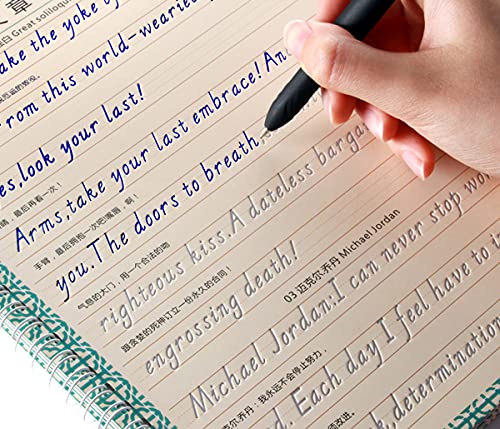 章
白 Great soliloquy
ake the yoke of
厄运的奴役。
rom this world-wearied
es,look your last!
睛，最后再看一次！
Arms,take your last embrace!And
手臂，最后拥抱一次吧!嘴唇，啊！
you.The doors to breath,
气息的大门，用一个合法的吻
righteous kiss.A dateless bargai
跟贪婪的死神订立一份永久的合同！
engrossing death!
03 迈克尔·乔丹 Michael Jordan
Michael Jordan:I can never stop work
迈克尔·乔丹：我永远不会停止努力，
d. Each day I feel have to i
须改进。
k,determination